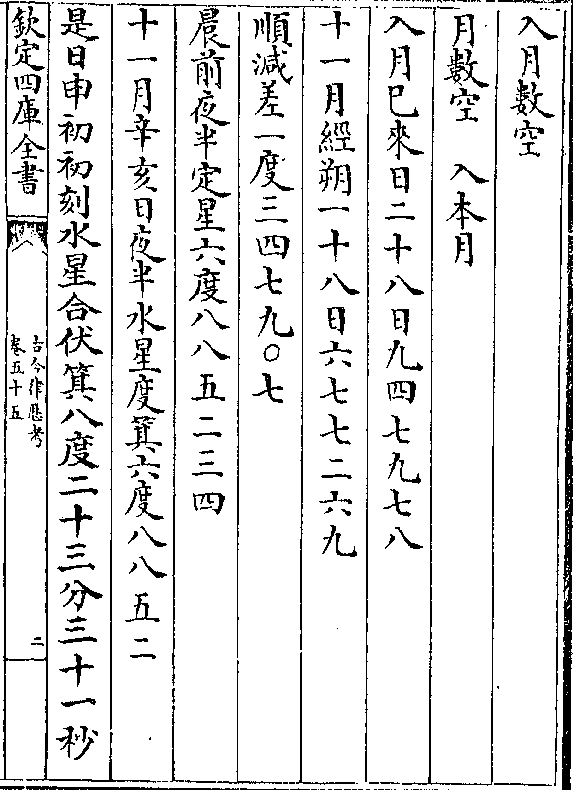 入月數空
月數空　入本月
入月已來日二十八日九四七九七八
十一月經朔一十八日六七七二六九
順減差一度三四七九〇七
晨前夜半定星六度八八五二三四
十一月辛亥日夜半水星度箕六度八八五二
是日申初初刻水星合伏箕八度二十三分三十一秒
欽定四庫全書
古今律歴考
卷五十五
二